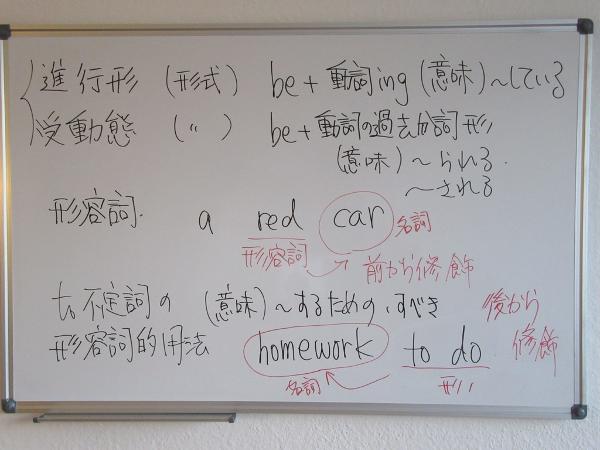 進行形 (形式) be+動詞ing (意味)~している
受動態 (〃) be+動詞の過去分詞形
(意味)~られる.
~される
形容詞. a red car 名詞
形容詞 前から修飾
to不定詞の (意味)~するための、すべき 後から
形容詞的用法 homework to do 修飾
名詞 形〃